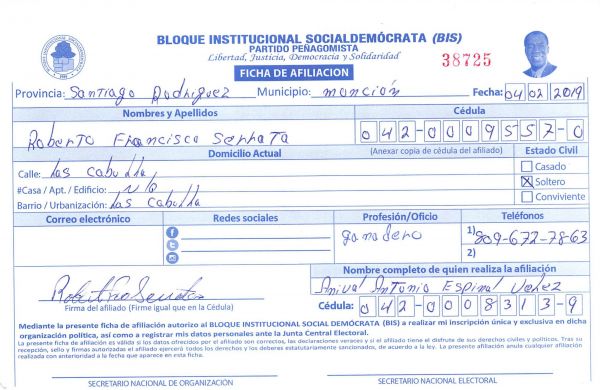 BLOQUE INSTITUCIONAL SOCIALDEMÓCRATA (BIS)
PARTIDO PEÑAGOMISTA
Libertad, Justicia, Democracia y Solidaridad
38725
FICHA DE AFILIACION
Provincia: Santiago Rodriguez Municipio: monción Fecha: 04 02 2019
Nombres y Apellidos Cédula
Roberto Francisco Serrata 042-0009557-0
Domicilio Actual (Anexar copia de cédula del afiliado) Estado Civil
Calle: Las Cabulla Casado
#Casa / Apt. / Edificio: N/6 Soltero
Barrio / Urbanización: Las Cabulla Conviviente
Correo electrónico Redes sociales Profesión/Oficio Teléfonos
ganadero 1) 809-672-78-63
2)
Nombre completo de quien realiza la afiliación
Anival Antonio Espinal
Firma del afiliado (Firme igual que en la Cédula) Cédula: 042-0008313-9
Mediante la presente ficha de afiliación autorizo al BLOQUE INSTITUCIONAL SOCIAL DEMÓCRATA (BIS) a realizar mi inscripción única y exclusiva en dicha
organización política, así como a registrar mis datos personales ante la Junta Central Electoral.
La presente ficha de afiliación es válida si los datos ofrecidos por el afiliado son correctos, las declaraciones veraces y si el afiliado tiene el disfrute de sus derechos civiles y políticos. Tras su
recepción, sello y firmas autorizadas el afiliado ejercerá todos los derechos y los deberes estatutariamente sancionados, de acuerdo a la ley. La presente afiliación anula cualquier afiliación
realizada con anterioridad a la fecha que aparece en esta ficha.
SECRETARIO NACIONAL DE ORGANIZACIÓN SECRETARIO NACIONAL ELECTORAL